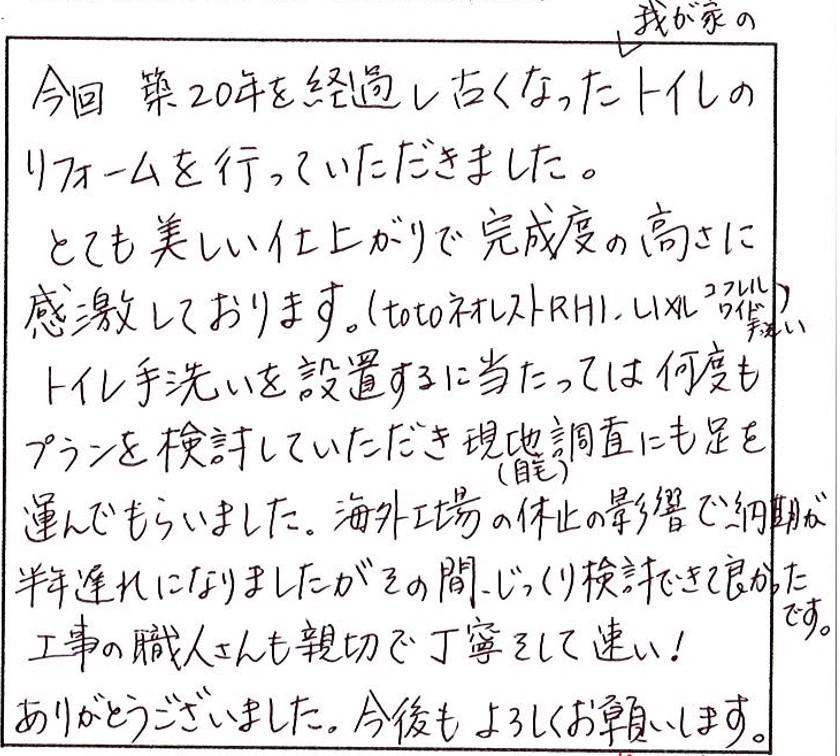 我が家の
今回 築20年を経過し古くなったトイレの
リフォームを行っていただきました。
とても美しい仕上がりで完成度の高さに
感激しております。(totoネオレストRH1、LIXIL コフレル ワイド 手洗い)
トイレ手洗いを設置するに当たっては何度も
プランを検討していただき現地調査にも足を
(自宅)
運んでもらいました。海外工場の休止の影響で納期が
半年遅れになりましたがその間、じっくり検討できて良かった
です。
工事の職人さんも親切で丁寧そして速い!
ありがとうございました。今後もよろしくお願いします。